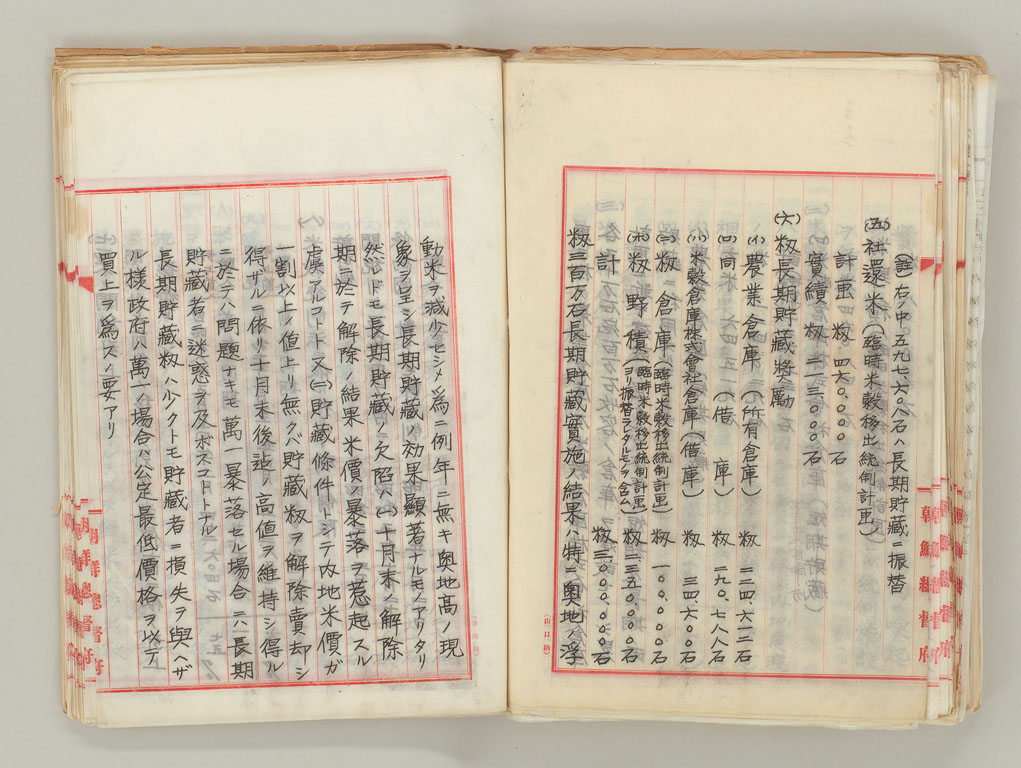 (註)右ノ中五九七、六〇八石ハ長期貯藏ニ振替
(五)社還米(臨時米穀移出統制計画)
計画 籾 四六〇、〇〇〇石
實績 籾 二一三、〇〇〇石
(六)籾長期貯藏奬勵
(イ)農業倉庫(所有倉庫) 籾 二二四、六一二石
(ロ)同 (借庫) 籾 二九〇、七八八石
(ハ)米穀倉庫株式會社倉庫(借庫) 籾 三四、六〇〇石
(ニ)籾倉庫(臨時米穀移出統制計画) 籾 一〇〇、〇〇〇石
(ホ)籾野積(臨時米穀移出統制計画ヨリ振替ヲタルモノヲ含ム) 籾 二三五〇、〇〇〇石
計 籾 三、〇〇〇、〇〇〇石
籾三百万石長期貯藏實施ノ結果ハ特ニ奥地ノ浮
動米ヲ減少セシメ為ニ例年ニ無キ奥地高ノ現
象ヲ呈シ長期貯藏ノ効果顯著ナルモノアリタリ
然レドモ長期貯藏ノ欠陥ハ(一)十月末ノ解除
期ニ於テ解除ノ結果米價ノ暴落ヲ惹起スル
虞アルコトト又(二)貯藏條件トシテ内地米價ガ
一割以上ノ値上リ無クバ貯藏籾ヲ解除賣却シ
得ザルニ依リ十月末後迠ノ高値ヲ維持シ得ル
ニ於テハ問題ナキモ萬一暴落セル場合ニハ長期
貯藏者ニ迷惑ヲ及ボスコトトナル
長期貯藏籾ハ少クトモ貯藏者ニ損失ヲ與ヘザ
ル樣政府ハ萬一ノ場合ハ公定最低價格ヲ以テ
買上ヲ為スノ要アリ
朝鮮總督府
朝鮮總督府